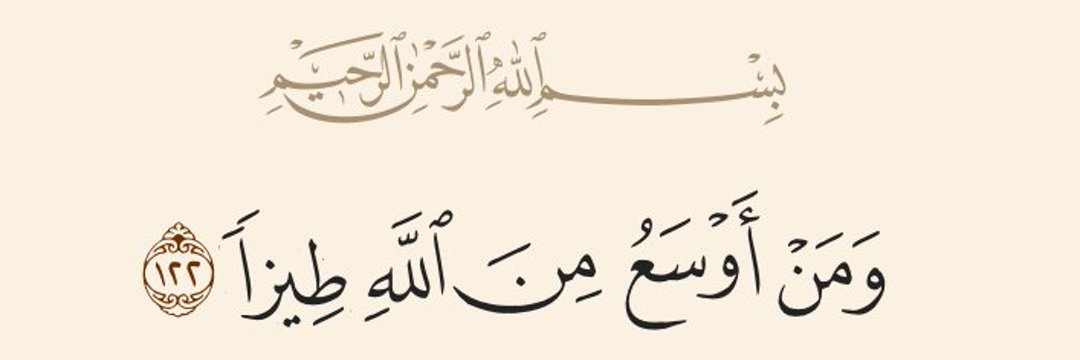 بِسْمِ ٱللَّهِ ٱلرَّحْمَٰنِ ٱلرَّحِيمِ
وَمَنْ أَوْسَعُ مِنَ ٱللَّهِ طِيزاً ١٢٢